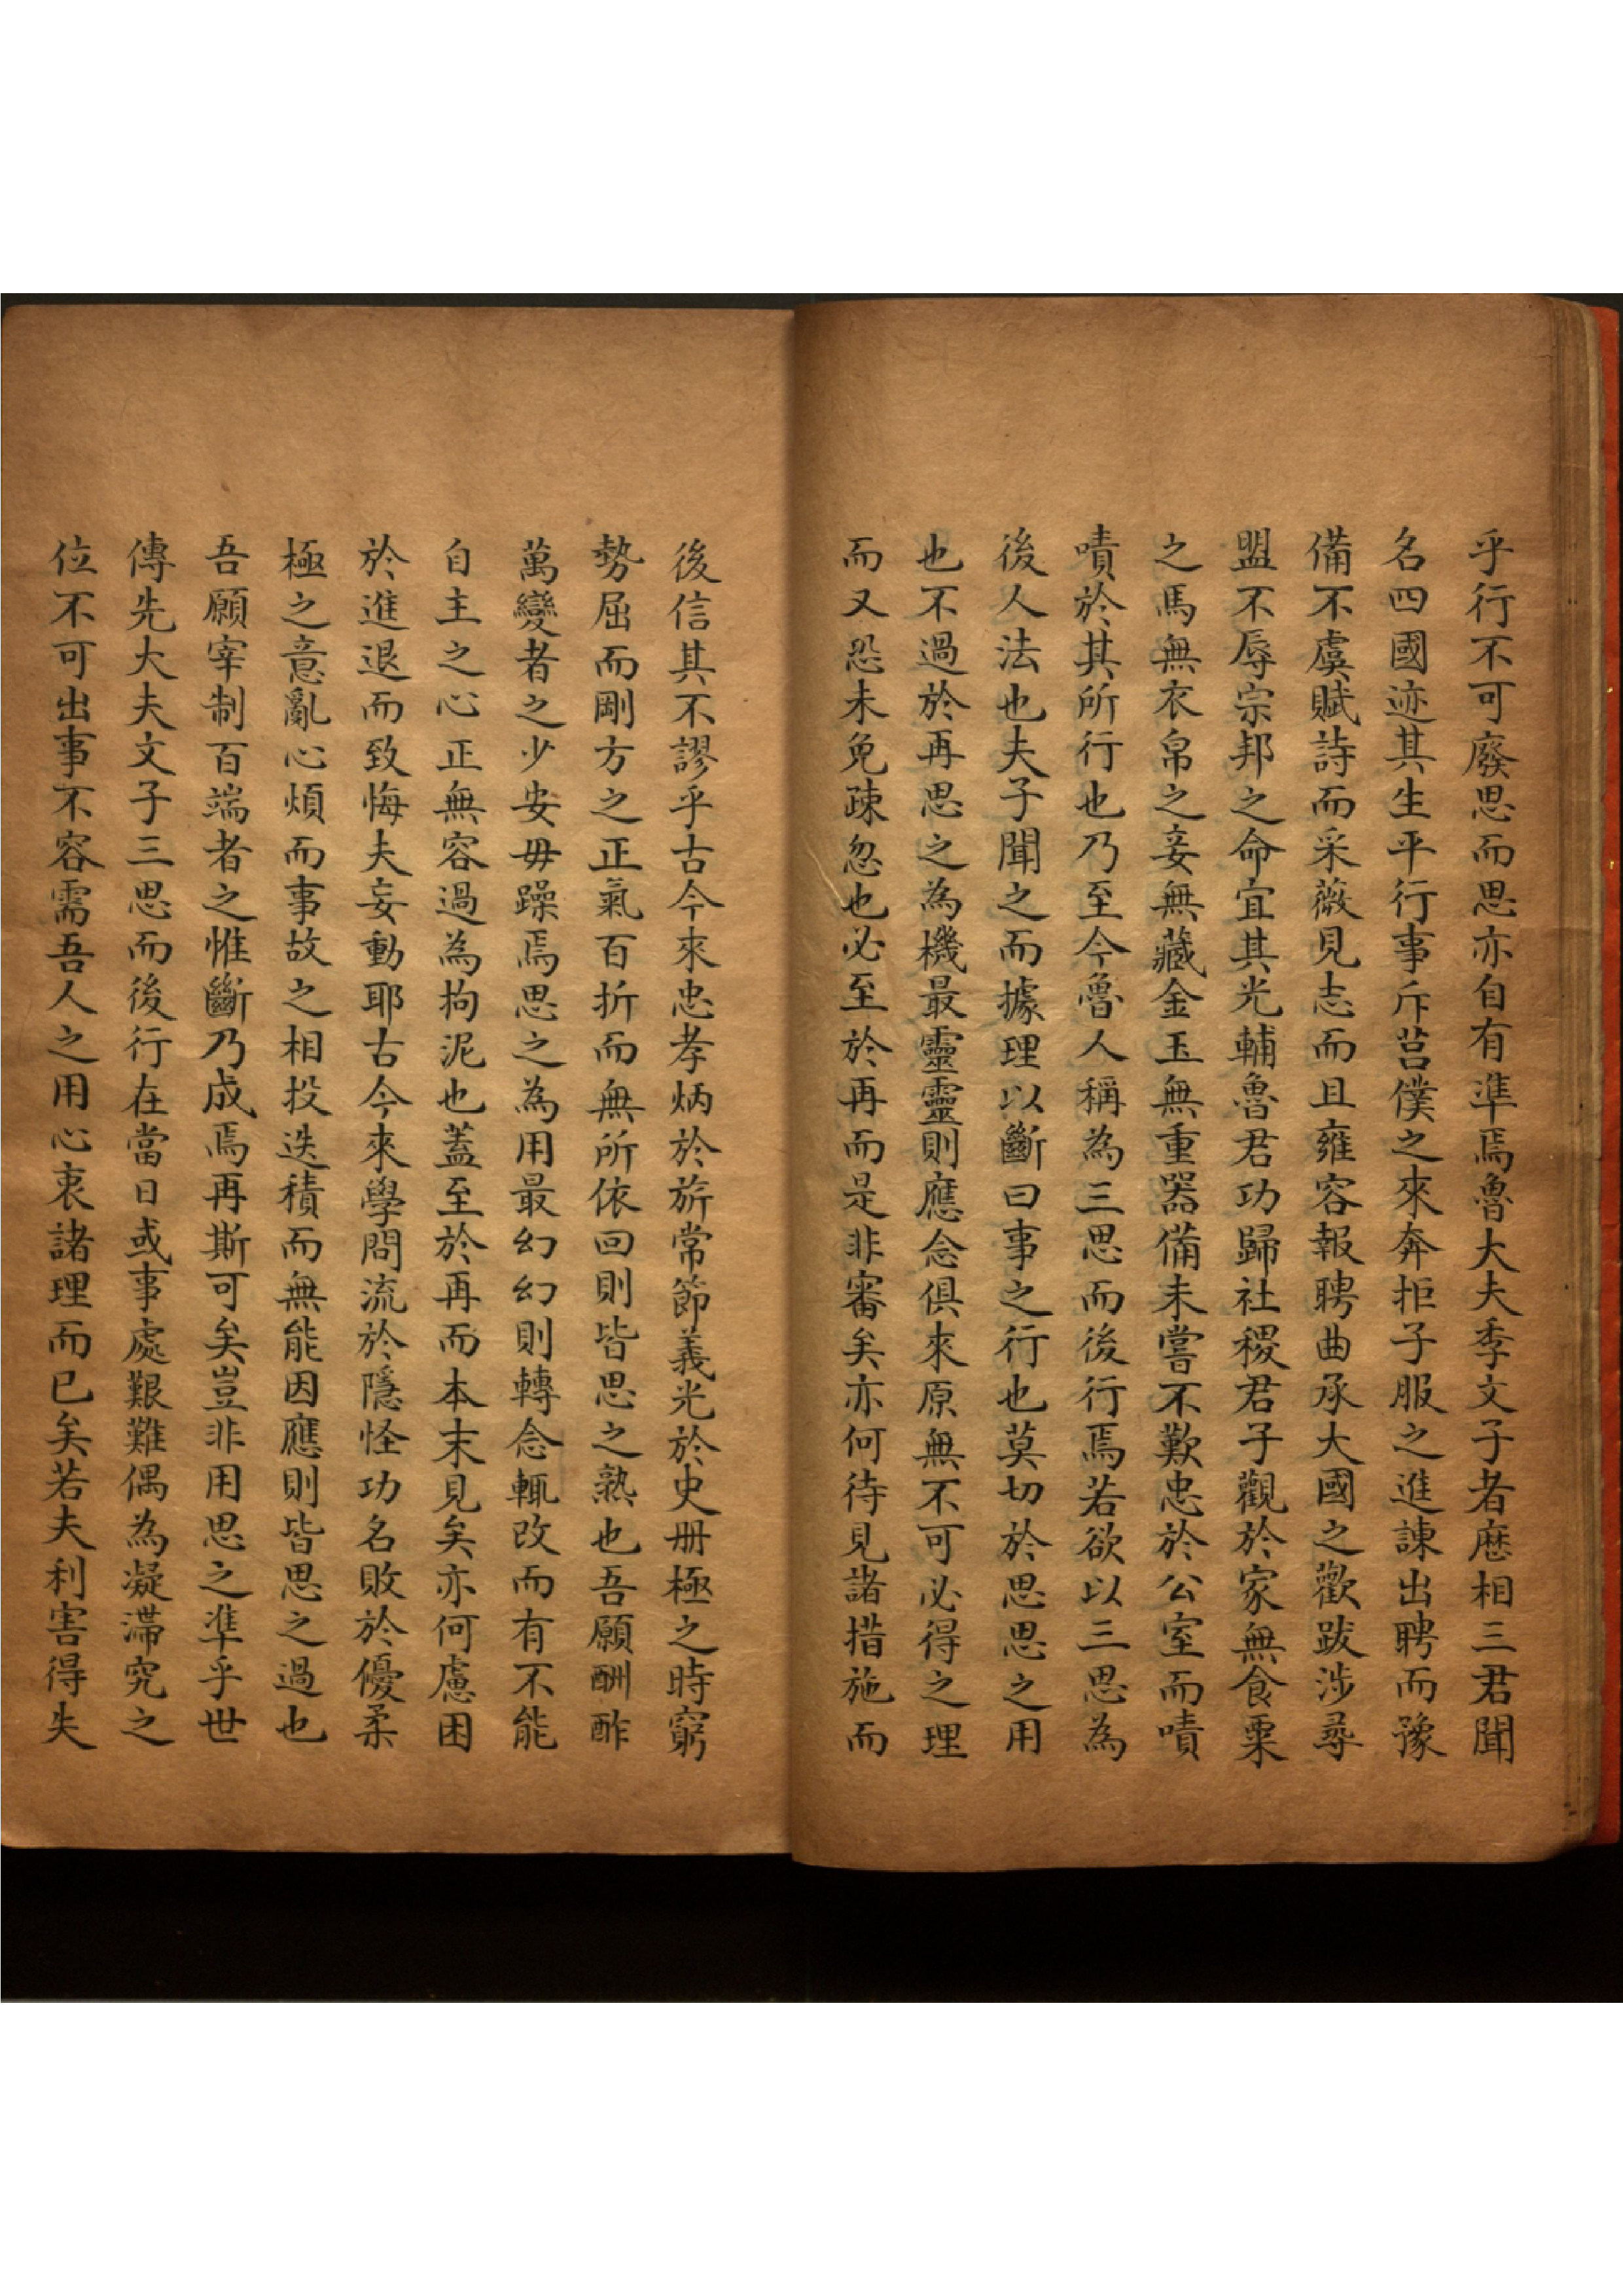 乎行不可廢思而思亦自有準焉魯大夫季文子者歷相三君聞
名四國迹其生平行事斥莒僕之來奔拒子服之進諫出聘而豫
備不虞賦詩而采薇見志而且雍容報聘曲承大國之歡跋涉尋
盟不辱宗邦之命宜其光輔魯君功歸社稷君子觀於家無食粟
之馬無衣帛之妾無藏金玉無重器備未嘗不歎忠於公室而嘖
嘖於其所行也乃至今魯人稱為三思而後行焉若欲以三思為
後人法也夫子聞之而據理以斷曰事之行也莫切於思思之用
也不過於再思之為機最靈靈則應念俱來原無不可必得之理
而又恐未免疎忽也必至於再而是非審矣亦何待見諸措施而
後信其不謬乎古今來忠孝炳於旂常節義光於史册極之時窮
勢屈而剛方之正氣百折而無所依回則皆思之熟也吾願酬酢
萬變者之少安毋躁焉思之為用最幻幻則轉念輒改而有不能
自主之心正無容過為拘泥也蓋至於再而本末見矣亦何慮困
於進退而致悔夫妄動耶古今來學問流於隱怪功名敗於優柔
極之意亂心煩而事故之相投迭積而無能因應則皆思之過也
吾願宰制百端者之惟斷乃成焉再斯可矣豈非用思之準乎世
傳先大夫文子三思而後行在當日或事處艱難偶為凝滯究之
位不可出事不容需吾人之用心衷諸理而已矣若夫利害得失